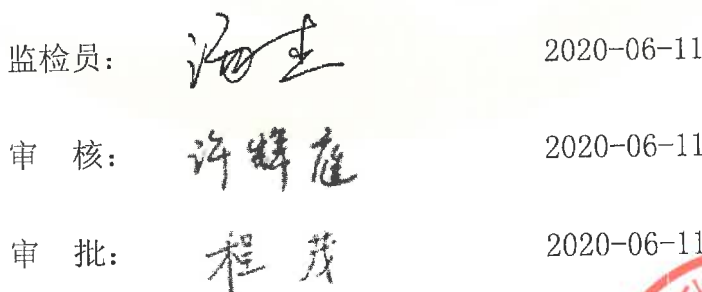 监检员： 2020-06-11
审 核： 许辉庭 2020-06-11
审 批： 程茂 2020-06-11